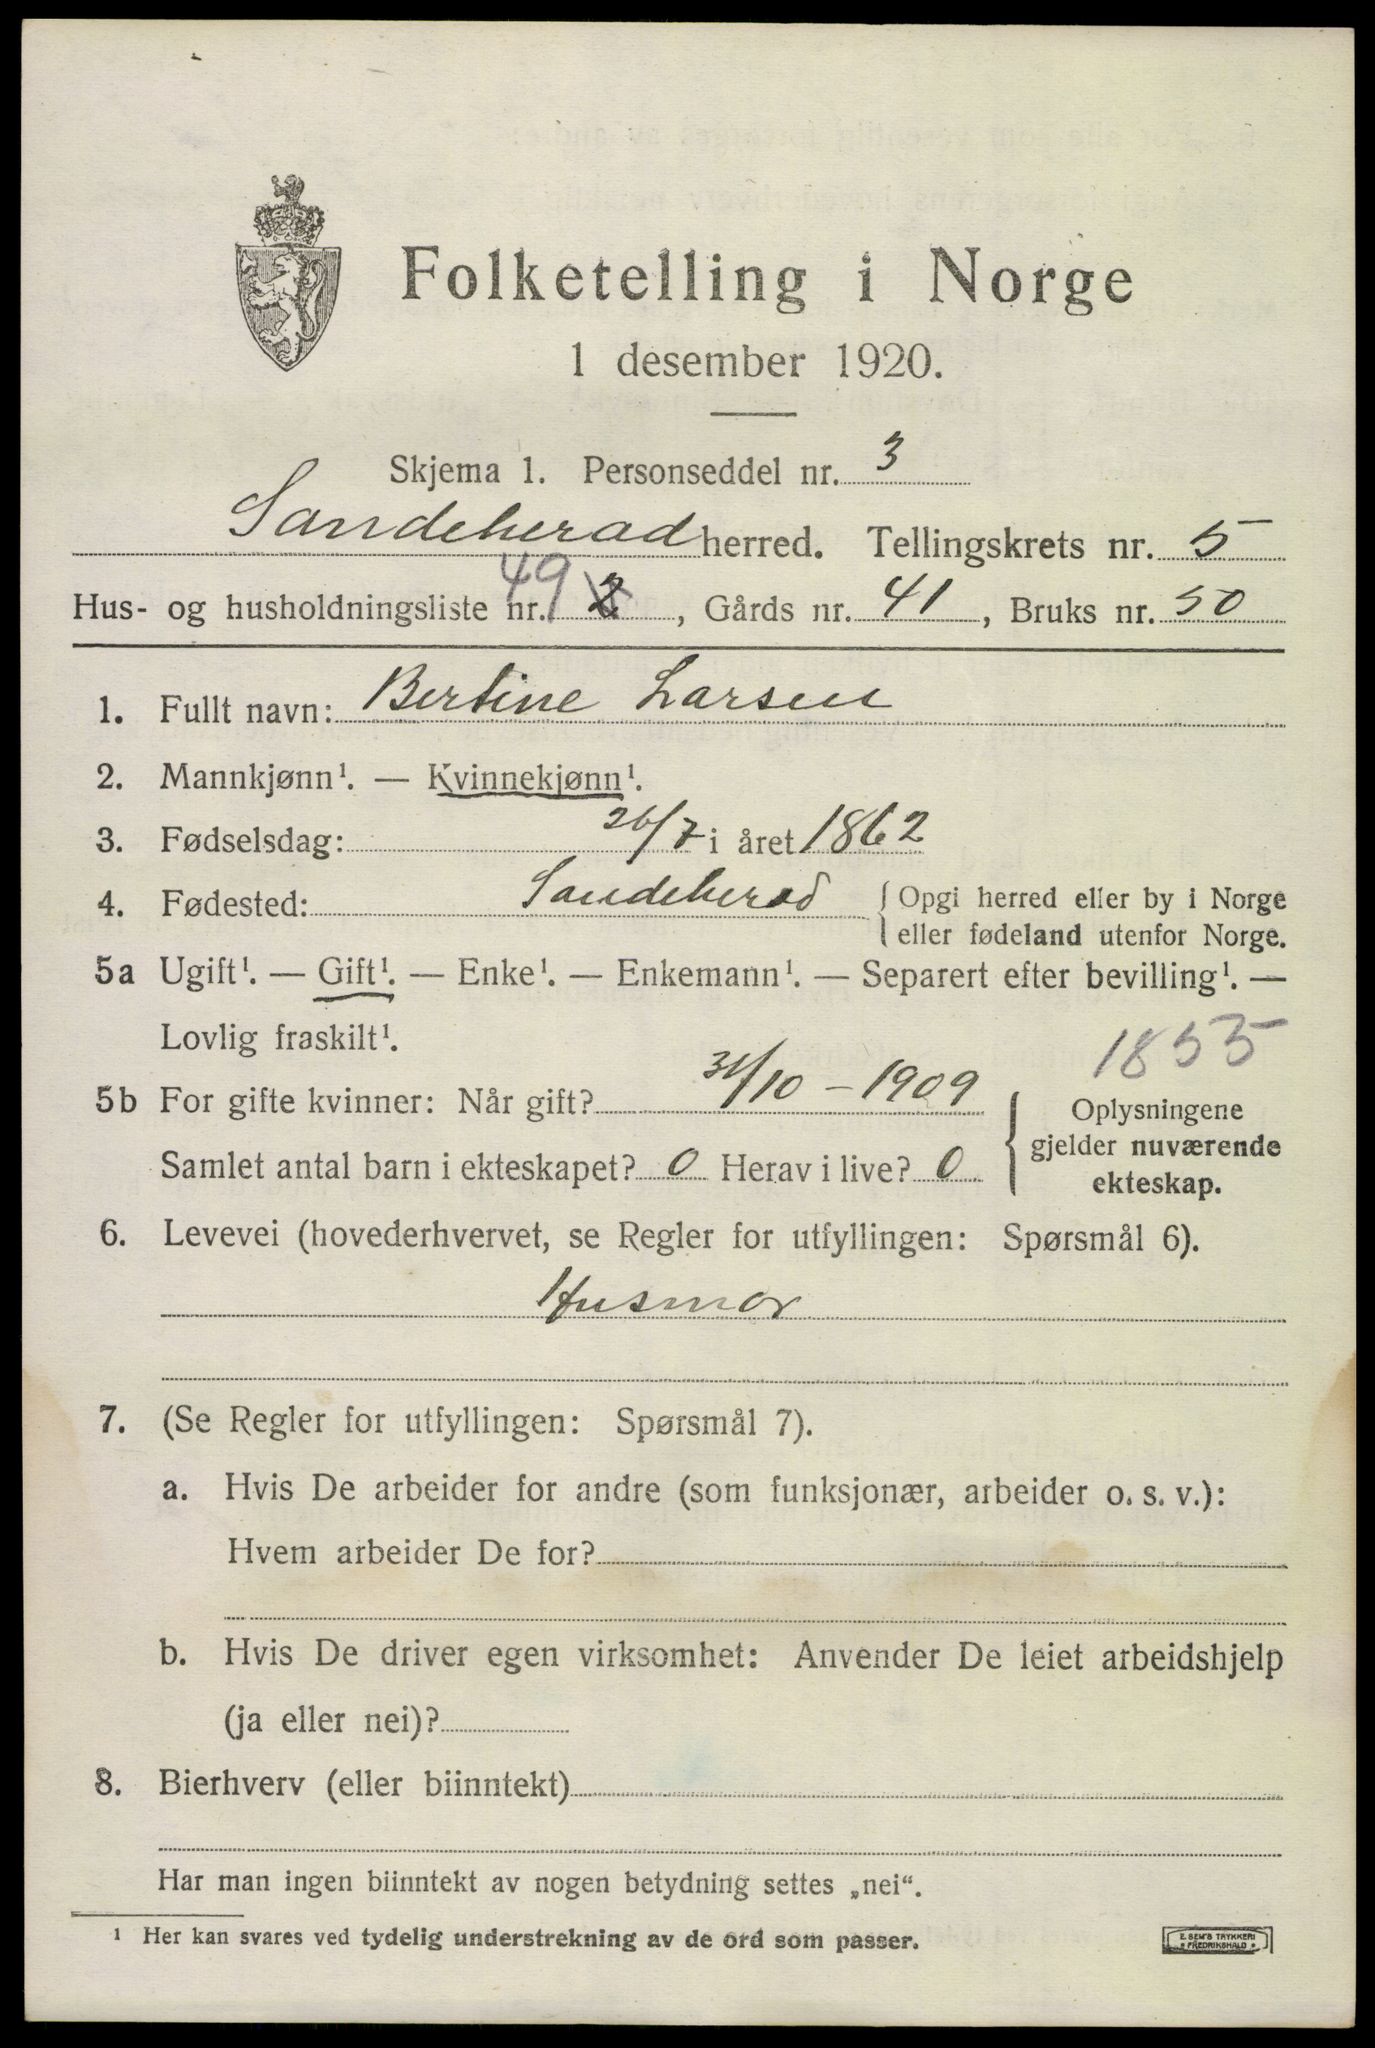 Folketelling i Norge
1 desember 1920.
Skjema 1. Personseddel nr. 3
Sandeherad herred. Tellingskrets nr. 5
49
Hus- og husholdningsliste nr. 2, Gårds nr. 41, Bruks nr. 50
1. Fullt navn: Bertine Larsen
2. Mannkjønn¹. — Kvinnekjønn¹.
3. Fødselsdag: 26/7 i året 1862
4. Fødested: Sandeherad { Opgi herred eller by i Norge
eller fødeland utenfor Norge.
5a Ugift¹. — Gift¹. — Enke¹. — Enkemann¹. — Separert efter bevilling¹. —
Lovlig fraskilt¹.
1855
5b For gifte kvinner: Når gift? 31/10 – 1909
Samlet antal barn i ekteskapet? 0 Herav i live? 0
Oplysningene
gjelder nuværende
ekteskap.
6. Levevei (hovederhvervet, se Regler for utfyllingen: Spørsmål 6).
Husmor
7. (Se Regler for utfyllingen: Spørsmål 7).
a. Hvis De arbeider for andre (som funksjonær, arbeider o. s. v.):
Hvem arbeider De for?
b. Hvis De driver egen virksomhet: Anvender De leiet arbeidshjelp
(ja eller nei)?
8. Bierhverv (eller biinntekt)
Har man ingen biinntekt av nogen betydning settes „nei“.
¹ Her kan svares ved tydelig understrekning av de ord som passer.
E. SEM'S TRYKKERI
FREDRIKSHALD